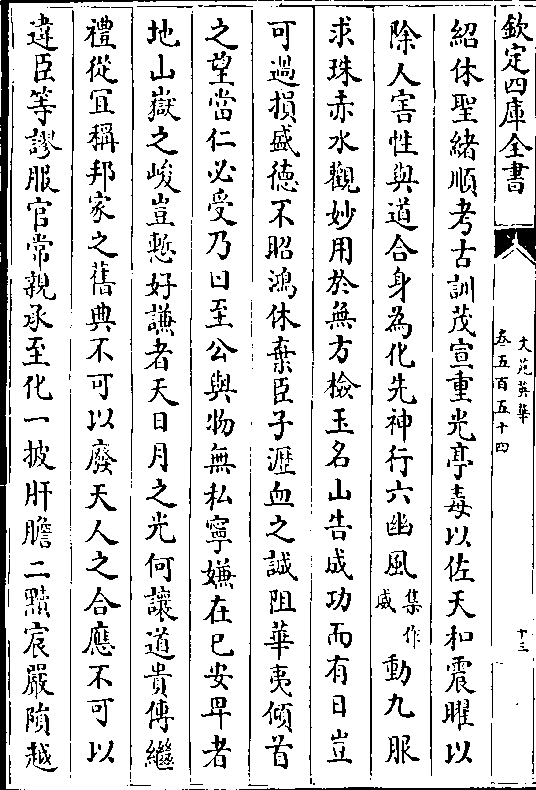 欽定四庫全書
文苑英華
卷五百五十四
十三
紹休聖緒順考古訓茂宣重光亭毒以佐天和震曜以
除人害性與道合身為化先神行六幽風集作威動九服
求珠赤水觀妙用於無方檢玉名山告成功而有日豈
可過損盛德不昭鴻休棄臣子瀝血之誠阻華夷傾首
之望當仁必受乃曰至公與物無私寧嫌在已安卑者
地山嶽之峻豈慙好謙者天日月之光何讓道貴傳繼
禮從冝稱邦家之舊典不可以廢天人之合應不可以
違臣等謬服官常親承至化一披肝膽二黷宸嚴隕越